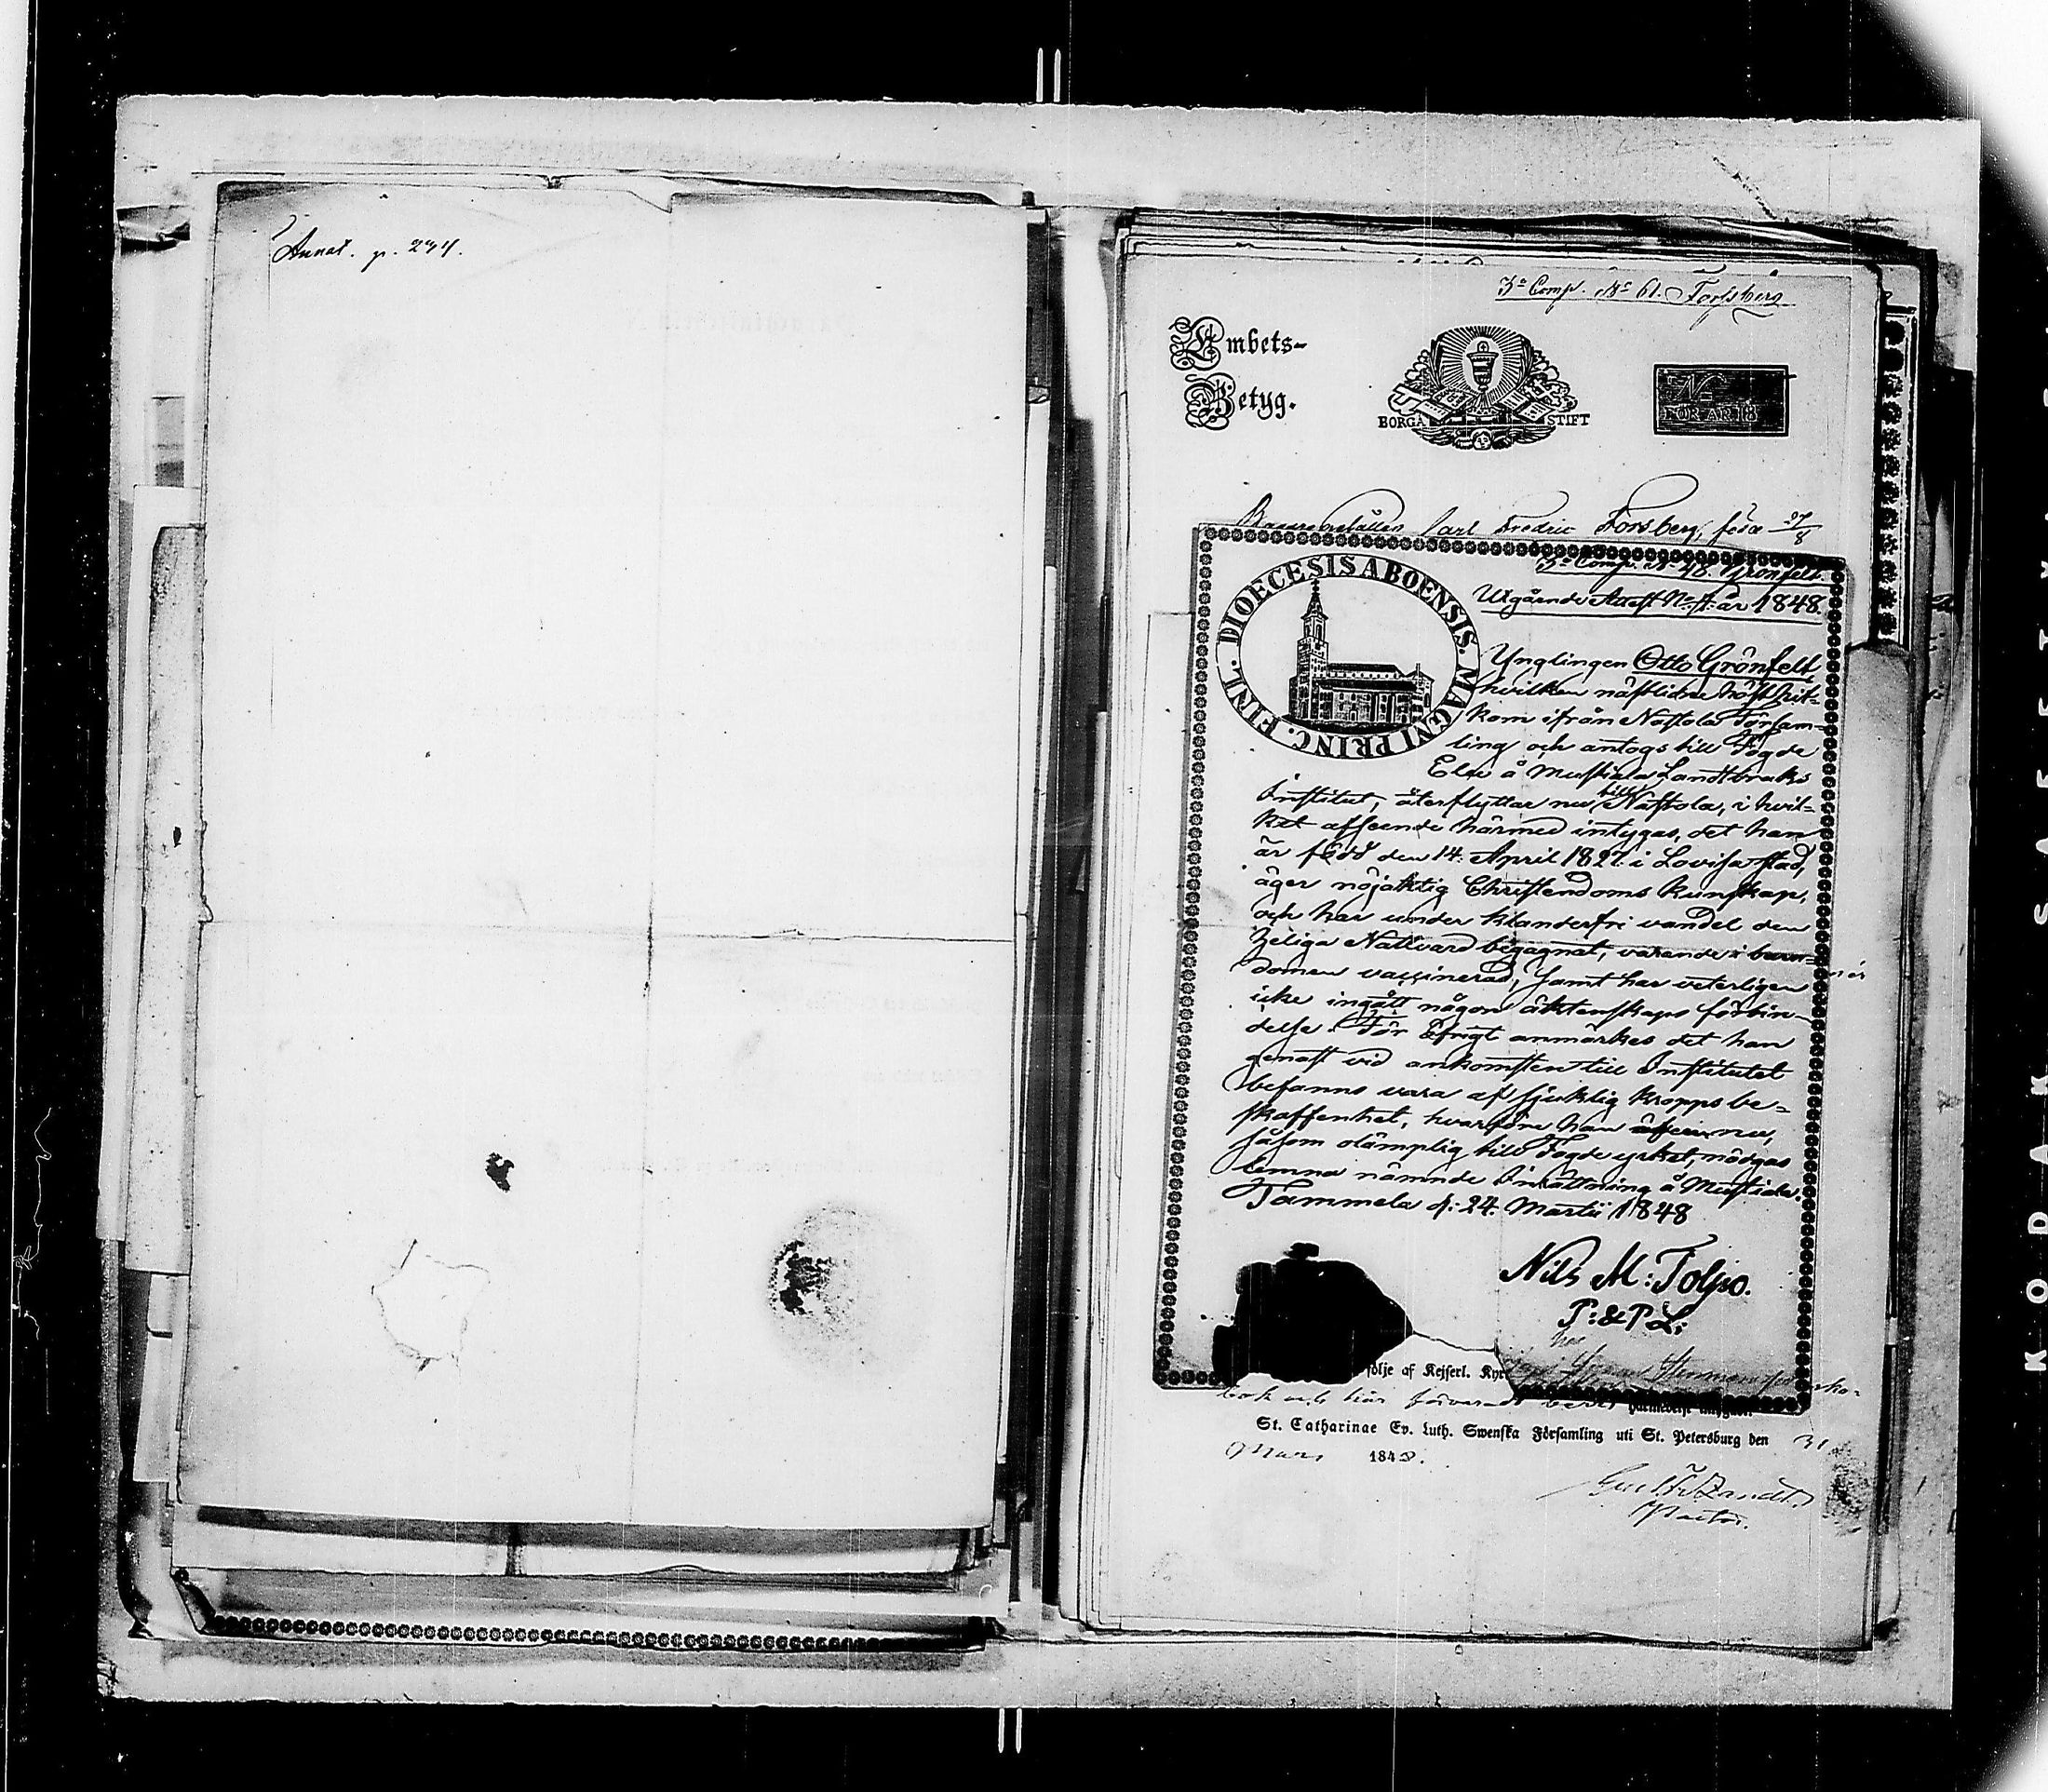 Annot. p. 274.
3e Comp. No 61. Forssberg
Embets-
Betyg.
BORGÅ STIFT
No
FÖR ÅR 18
Carl Fredric Forsberg, född 27/8
3e Comp. No 48. Grönfelt.
DIOECESIS ABOENSIS. MAGNI PRINC. FINL.
Utgående Attest No 7: år 1848.
Ynglingen Otto Grönfelt,
hvilken nästlidne höst hit-
kom ifrån Nastola Försam-
ling och antogs till Fogde
Elev å Mustiala Landtbruks
Institut, återflyttar nu till Nastola, i hvil-
ket afseende härmed intygas, det han
är född den 14. April 1827. i Lovisa stad,
äger nöjaktig Christendoms kunskap,
och har under klanderfri vandel den
Heliga Nattvard begagnat, varande i barn-
domen vaccinerad, samt har veterligen
icke ingått någon äktenskaps förbin-
delse. För öfrigt anmärkes det han
genast vid ankomsten till Institutet
befanns vara af sjuklig kropps be-
skaffenhet, hvarföre han nu,
såsom olämplig till Fogde yrket, nödgas
lemna nämnde Inrättning å Mustiala.
Tammela d: 24. Martii 1848
Nils M: Tolpo.
P: & P L:
följe af Kejserl. Kyr
bok och här förvarade
härmedelst
St. Catharinae Ev. Luth. Swenska Församling uti St. Petersburg den 31
Mars 1848.
Gust F Zandt.
Pastor.
KODAK SAFETY